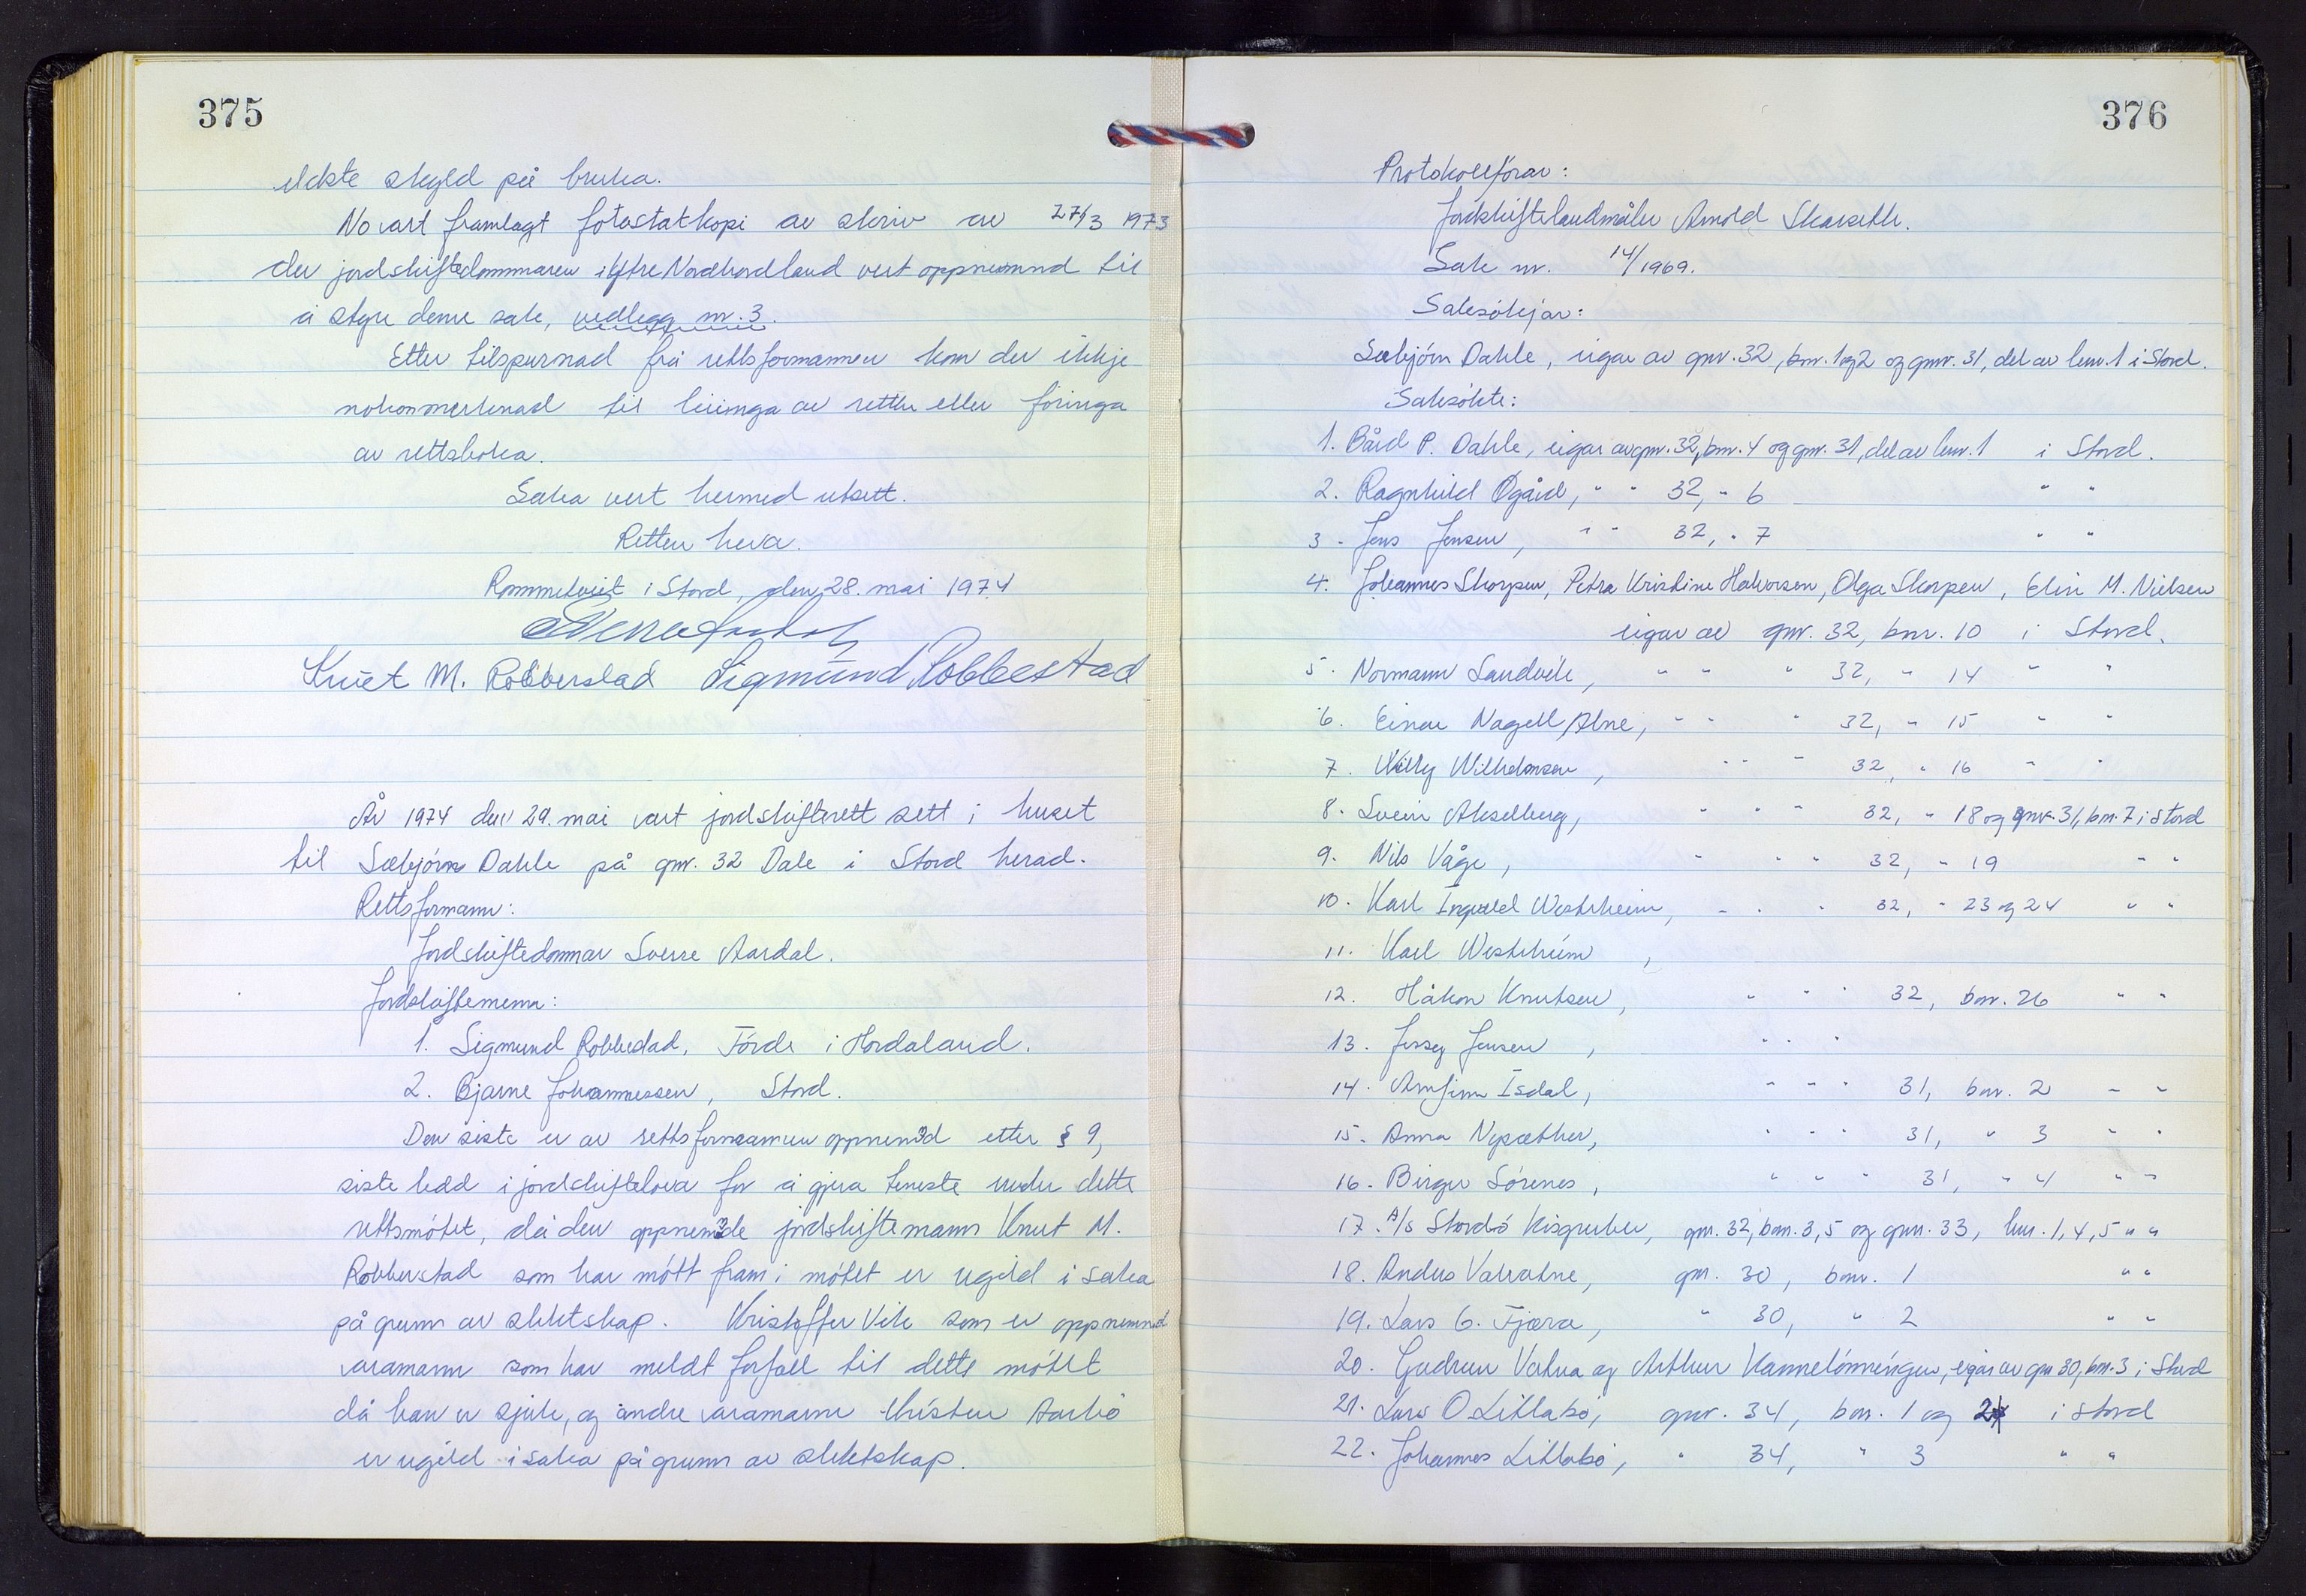 375
eldste skyld på bruka.
No vart framlagt fotostatkopi av skriv av 27/3 1973
der jordskiftedommaren i Ytre Nordhordland vert oppnemnd til
å styre denne sak, vedlegg nr. 3.
Etter tilspurnad frå rettsformannen kom der ikkje
nokon merknad til lesinga av retten eller föringa
av rettsboka.
Saka vert hermed utsett.
Retten heva.
Rommetveit i Stord, den 28. mai 1974
Knut M. Robberstad Sigmund Robbestad
År 1974 den 29. mai vart jordskifterett sett i huset
til Sæbjörn Dahle på gnr. 32 Dale i Stord herad.
Rettsformann:
Jordskiftedommar Sverre Aardal.
Jordskiftemenn:
1. Sigmund Robbestad, Förde i Hordaland.
2. Bjarne Johannessen, Stord.
Den siste er av rettsformannen oppnemnd etter § 9,
siste ledd i jordskiftelova for å gjera teneste under dette
rettsmötet, då den oppnemnde jordskiftemann Knut M.
Robberstad som har mött fram i mötet er ugild i saka
på grunn av slektskap. Kristoffer Vik som er oppnemnd
varamann som har meldt forfall til dette mötet
då han er sjuk, og andre varamann Kristen Aarbö
er ugild i saka på grunn av slektskap.
376
Protokollförar:
Jordskiftelandmåler Arnold Skarseth.
Sak nr. 14/1969.
Saksökjar:
Sæbjörn Dahle, eigar av gnr. 32, bnr. 1 og 2 og gnr. 31, del av bnr. 1 i Stord.
Saksökte:
1. Bård P. Dahle, eigar av gnr. 32, bnr. 4 og gnr. 31, del av bnr. 1 i Stord.
2. Ragnhild Øgård, " " 32, " 6 " "
3. Jens Jensen, " " 32, " 7 " "
4. Johannes Skorpen, Petra Kristine Halvorsen, Olga Skorpen, Elin M. Nielsen
eigar av gnr. 32, bnr. 10 i Stord.
5. Normann Sandvik, " " " 32, " 14 " "
6. Einar Nagell Alne, " " " 32, " 15 " "
7. Willy Wilhelmsen, " " " 32, " 16 " "
8. Svein Akselberg, " " " 32, " 18 og gnr. 31, bnr. 7 i Stord
9. Nils Våge, " " " 32, " 19 " "
10. Karl Ingvald Westrheim, " " " 32, " 23 og 24 " "
11. Karl Westrheim,
12. Håkon Knutsen, " " " 32, bnr. 26 " "
13. Jersey Jensen, " " "
14. Arnfinn Isdal, " " " 31, bnr. 2 " "
15. Anna Nysæther, " " " 31, " 3 " "
16. Birger Sörenes, " " " 31, " 4 " "
17. A/s Stordö Kisgruber, gnr. 32, bnr. 3, 5 og gnr. 33, bnr. 1, 4, 5 " "
18. Anders Vatnatne, gnr. 30, bnr. 1 " "
19. Lars G. Fjæra, " 30, " 2 " "
20. Gudrun Vatna og Arthur Kannelönningen, eigar av gnr 30, bnr. 3 i Stord
21. Lars O Litlabö, gnr. 34, bnr. 1 og 2 i Stord
22. Johannes Litlabö, " 34, " 3 " "